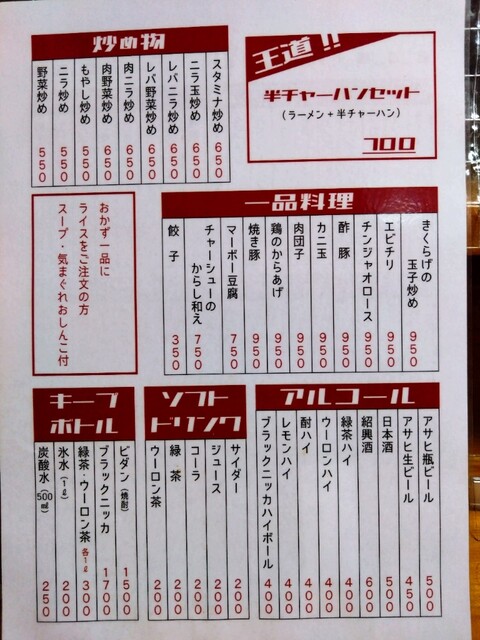 炒め物
スタミナ炒め 650
ニラ玉炒め 650
レバニラ炒め 650
レバ野菜炒め 650
肉ニラ炒め 650
肉野菜炒め 650
もやし炒め 550
ニラ炒め 550
野菜炒め 550
王道!!
半チャーハンセット
(ラーメン+半チャーハン)
700
おかず一品に
ライスをご注文の方
スープ・気まぐれおしんこ付
一品料理
きくらげの玉子炒め 950
エビチリ 950
チンジャオロース 950
酢豚 950
カニ玉 950
肉団子 950
鶏のからあげ 950
焼き豚 950
マーボー豆腐 750
チャーシューのからし和え 750
餃子 350
キープボトル
ビダン(焼酎) 1500
ブラックニッカ 1700
緑茶・ウーロン茶 各1ℓ 300
氷水(1ℓ) 200
炭酸水(500㎖) 250
ソフトドリンク
サイダー 200
ジュース 200
コーラ 200
緑茶 200
ウーロン茶 200
アルコール
アサヒ瓶ビール 500
アサヒ生ビール 450
日本酒 500
紹興酒 600
緑茶ハイ 400
ウーロンハイ 400
酎ハイ 400
レモンハイ 400
ブラックニッカハイボール 400